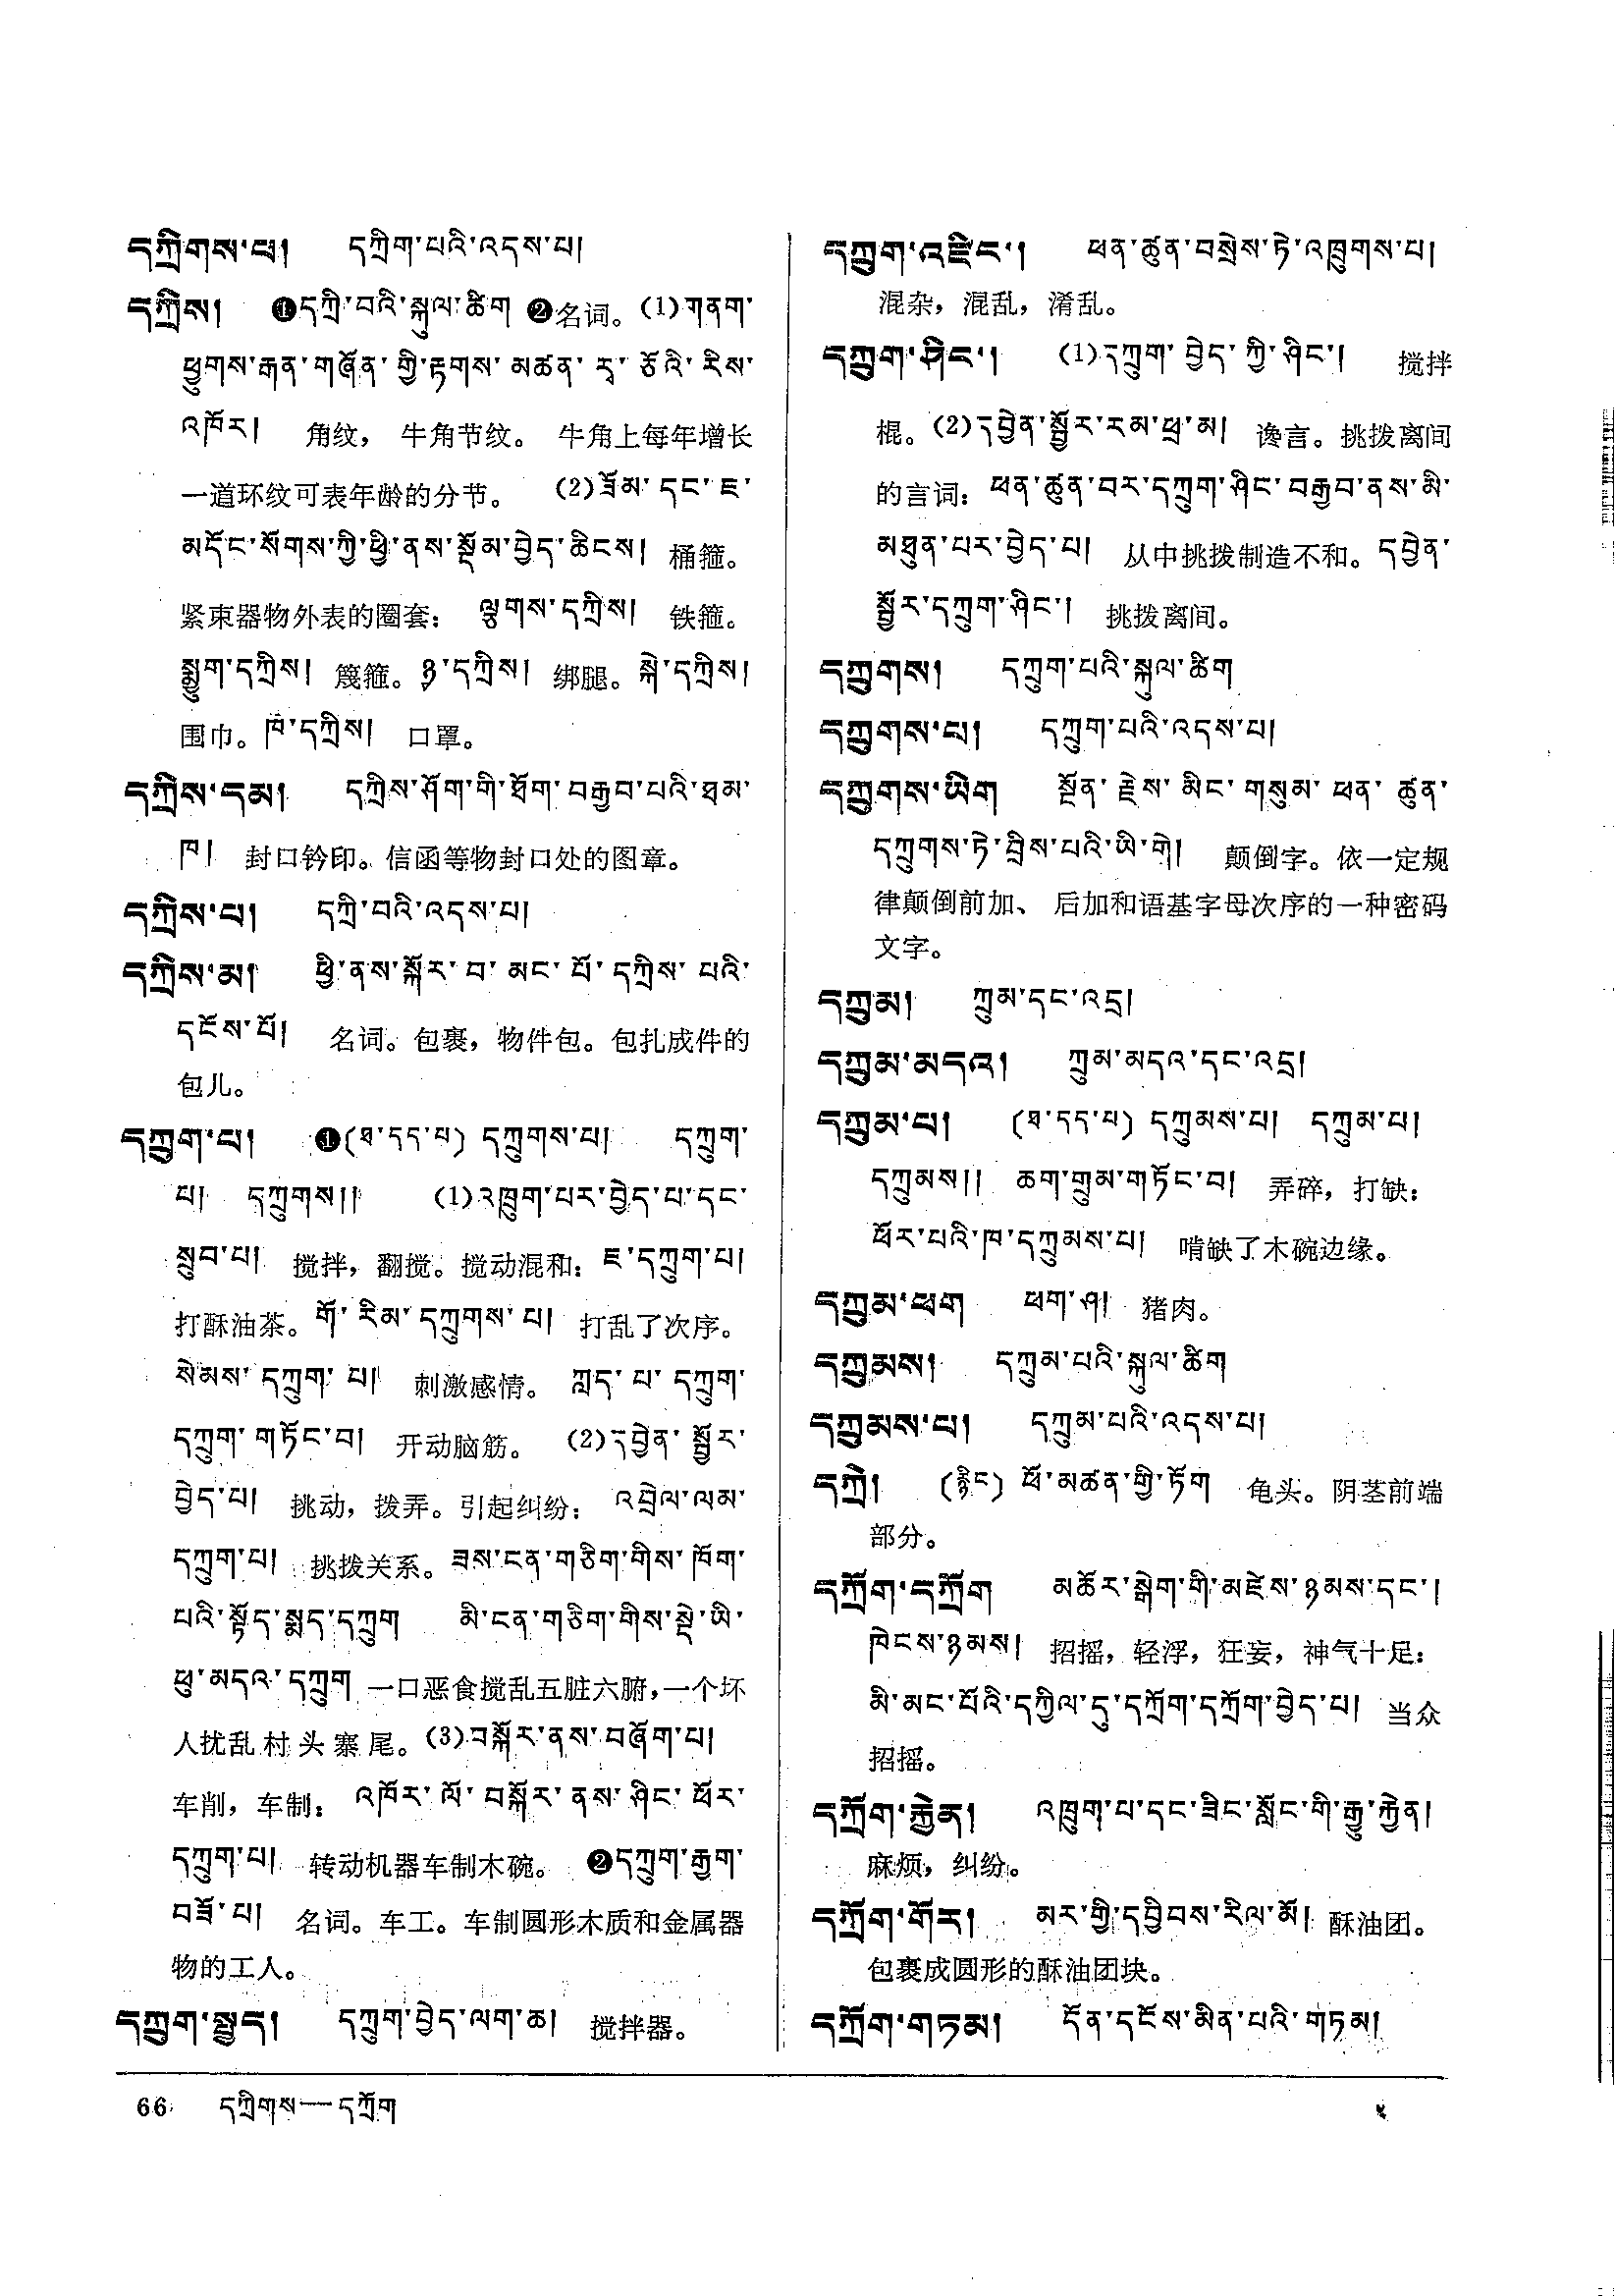 དཀྲིགས་པ། དཀྲིག་པའི་འདས་པ།
དཀྲིས། ❶དཀྲི་བའི་སྐུལ་ཚིག ❷名词。(1)གནག་
ཕྱུགས་རྒན་གཞོན་གྱི་རྟགས་མཚན་རྭ་ཅོའི་རིས་
འཁོར། 角纹，牛角节纹。牛角上每年增长
一道环纹可表年龄的分节。 (2)ཟོམ་དང་ཇ་
མདོང་སོགས་ཀྱི་ཕྱི་ནས་སྡོམ་བྱེད་ཆིངས། 桶箍。
紧束器物外表的圈套： ལྕགས་དཀྲིས། 铁箍。
སྨྱུག་དཀྲིས། 篾箍。ཉྭ་དཀྲིས། 绑腿。སྐེ་དཀྲིས།
围巾。ཁ་དཀྲིས། 口罩。
དཀྲིས་དམ། དཀྲིས་ཤོག་གི་ཐོག་བརྒྱབ་པའི་ཐམ་
ཁ། 封口钤印。信函等物封口处的图章。
དཀྲིས་པ། དཀྲི་བའི་འདས་པ།
དཀྲིས་མ། ཕྱི་ནས་སྐོར་བ་མང་པོ་དཀྲིས་པའི་
དངོས་པོ། 名词。包裹，物件包。包扎成件的
包儿。
དཀྲུག་པ། ❶(ཐ་དད་པ) དཀྲུགས་པ། དཀྲུག་
པ། དཀྲུགས།། (1)འཁྲུག་པར་བྱེད་པ་དང་
སྲུབ་པ། 搅拌，翻搅。搅动混和：ཇ་དཀྲུག་པ།
打酥油茶。གོ་རིམ་དཀྲུགས་པ། 打乱了次序。
སེམས་དཀྲུག་པ། 刺激感情。 ཀླད་པ་དཀྲུག་
དཀྲུག་གཏོང་བ། 开动脑筋。 (2)དབྱེན་སྦྱོར་
བྱེད་པ། 挑动，拨弄。引起纠纷： འབྲེལ་ལམ་
དཀྲུག་པ། 挑拨关系。ཟས་ངན་གཅིག་གིས་ཁོག་
པའི་སྟོད་སྨད་དཀྲུག མི་ངན་གཅིག་གིས་སྡེ་ཡི་
ཕུ་མདའ་དཀྲུག 一口恶食搅乱五脏六腑，一个坏
人扰乱村头寨尾。(3)བསྐོར་ནས་བཞོག་པ།
车削，车制： འཁོར་ལོ་བསྐོར་ནས་ཤིང་ཕོར་
དཀྲུག་པ། 转动机器车制木碗。 ❷དཀྲུག་རྒྱག་
བཟོ་པ། 名词。车工。车制圆形木质和金属器
物的工人。
དཀྲུག་སྤྱད། དཀྲུག་བྱེད་ལག་ཆ། 搅拌器。
དཀྲུག་འཛིང་། ཕན་ཚུན་བསྲེས་ཏེ་འཁྲུགས་པ།
混杂，混乱，淆乱。
དཀྲུག་ཤིང་། (1)དཀྲུག་བྱེད་ཀྱི་ཤིང་། 搅拌
棍。(2)དབྱེན་སྦྱོར་རམ་ཕྲ་མ། 谗言。挑拨离间
的言词：ཕན་ཚུན་བར་དཀྲུག་ཤིང་བརྒྱབ་ནས་མི་
མཐུན་པར་བྱེད་པ། 从中挑拨制造不和。དབྱེན་
སྦྱོར་དཀྲུག་ཤིང་། 挑拨离间。
དཀྲུགས། དཀྲུག་པའི་སྐུལ་ཚིག
དཀྲུགས་པ། དཀྲུག་པའི་འདས་པ།
དཀྲུགས་ཡིག སྔོན་རྗེས་མིང་གསུམ་ཕན་ཚུན་
དཀྲུགས་ཏེ་བྲིས་པའི་ཡི་གེ། 颠倒字。依一定规
律颠倒前加、后加和语基字母次序的一种密码
文字。
དཀྲུམ། ཀྲུམ་དང་འདྲ།
དཀྲུམ་མདའ། ཀྲུམ་མདའ་དང་འདྲ།
དཀྲུམ་པ། (ཐ་དད་པ) དཀྲུམས་པ། དཀྲུམ་པ།
དཀྲུམས།། ཆག་གྲུམ་གཏོང་བ། 弄碎，打缺：
ཕོར་པའི་ཁ་དཀྲུམས་པ། 啃缺了木碗边缘。
དཀྲུམ་ཕག ཕག་ཤ། 猪肉。
དཀྲུམས། དཀྲུམ་པའི་སྐུལ་ཚིག
དཀྲུམས་པ། དཀྲུམ་པའི་འདས་པ།
དཀྲེ། (རྙིང) ཕོ་མཚན་གྱི་ཏོག 龟头。阴茎前端
部分。
དཀྲོག་དཀྲོག མཆོར་སྒེག་གི་མཛེས་ཉམས་དང་།
ཁེངས་ཉམས། 招摇，轻浮，狂妄，神气十足：
མི་མང་པོའི་དཀྱིལ་དུ་དཀྲོག་དཀྲོག་བྱེད་པ། 当众
招摇。
དཀྲོག་རྐྱེན། འཁྲུག་པ་དང་ཟིང་སློང་གི་རྒྱུ་རྐྱེན།
麻烦，纠纷。
དཀྲོག་གོར། མར་གྱི་དབྱིབས་རིལ་མོ། 酥油团。
包裹成圆形的酥油团块。
དཀྲོག་གཏམ། དོན་དངོས་མིན་པའི་གཏམ།
66 དཀྲིགས—དཀྲོག